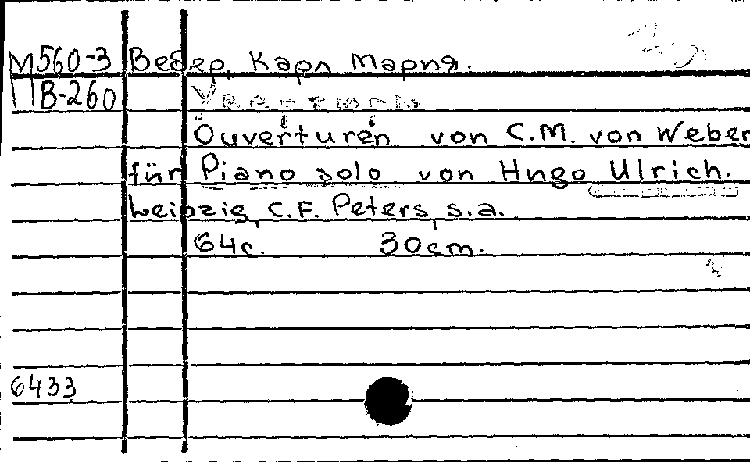 М560-3 Вебер, Карл Мария.
ПВ-260
Ouvertüren von C.M. von Weber
für Piano solo von Hugo Ulrich.
Leipzig, C.F. Peters, s.a.
64c. 30cm.
6433